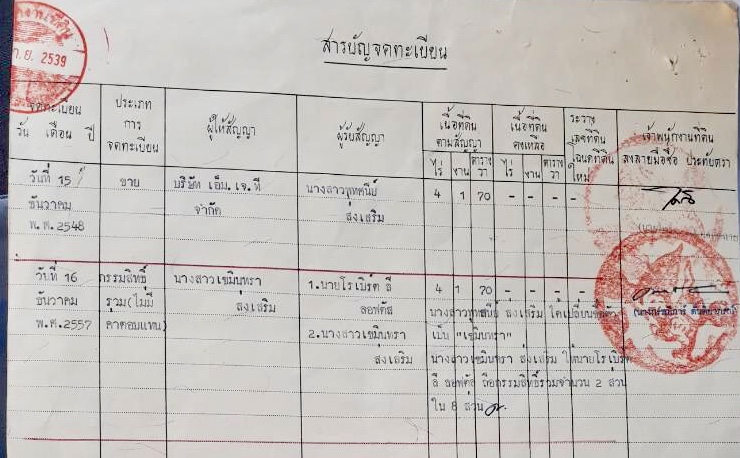 ก.ย. 2539
สารบัญจดทะเบียน
จดทะเบียน วัน เดือน ปี
ประเภท การ จดทะเบียน
ผู้ให้สัญญา
ผู้รับสัญญา
เนื้อที่ดิน ตามสัญญา
ไร่ งาน ตารางวา
เนื้อที่ดิน คงเหลือ
ไร่ งาน ตารางวา
ระวาง เลขที่ดิน โฉนดที่ดิน ใหม่
เจ้าพนักงานที่ดิน ลงลายมือชื่อ ประทับตรา
วันที่ 15 ขาย บริษัท เอ็ม.เจ.ที นางสาวพุทศนีย์ 4 1 70 - - - -
ธันวาคม จำกัด ส่งเสริม
พ.ศ.2548
วันที่ 16 กรรมสิทธิ์ นางสาวเขมินทรา 1.นายโรเบิร์ต ลี 4 1 70 - - - -
ธันวาคม รวม(ไม่มี ส่งเสริม ลอฟตัส นางสาวพุทศนีย์ ส่งเสริม ได้เปลี่ยนชื่อตัว
พ.ศ.2557 ค่าตอบแทน) 2.นางสาวเขมินทรา เป็น "เขมินทรา"
ส่งเสริม นางสาวเขมินทรา ส่งเสริม ให้นายโรเบิร์ต
ลี ลอฟตัส ถือกรรมสิทธิ์รวมจำนวน 2 ส่วน
ใน 8 ส่วน